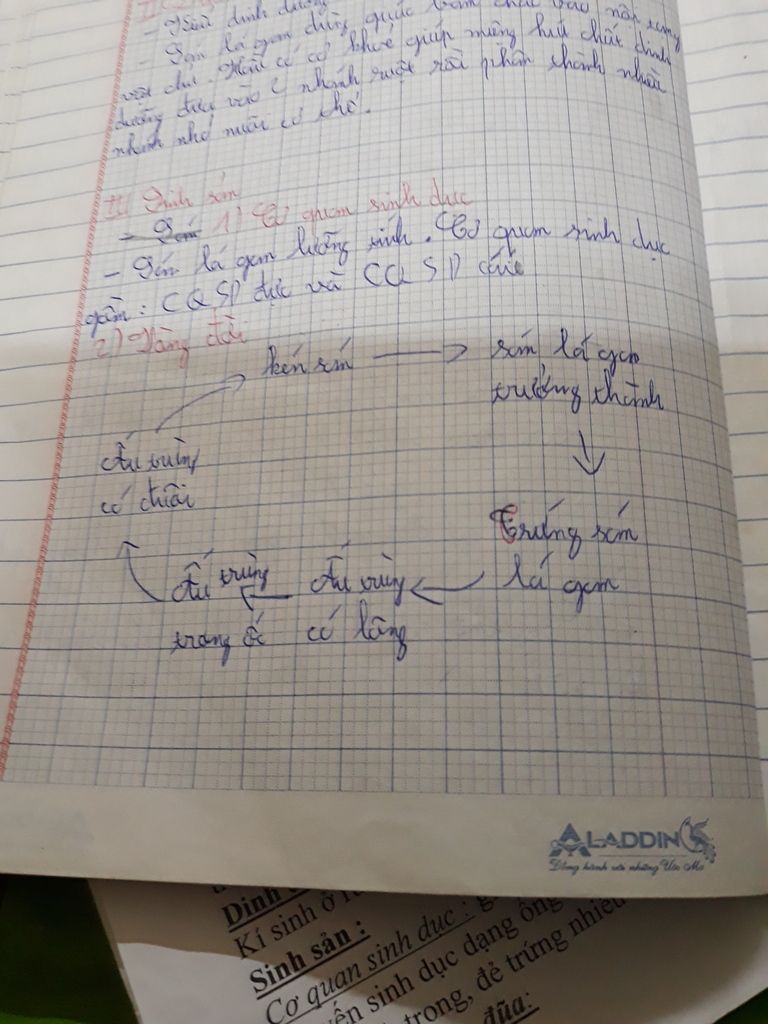 - Sán lá gan dùng giác bám chặt vào nội tạng
vật chủ. Hầu có cơ khoẻ giúp miệng hút chất dinh
dưỡng đưa vào 2 nhánh ruột rồi phân thành nhiều
nhánh nhỏ nuôi cơ thể.
III Sinh sản
1) Cơ quan sinh dục
- Sán lá gan lưỡng tính. Cơ quan sinh dục
gồm: CQSD đực và CQSD cái
2) Vòng đời
kén sán → sán lá gan
trưởng thành
Ấu trùng
có đuôi
Trứng sán
lá gan
Ấu trùng
trong ốc
Ấu trùng
có lông
ALADDIN
Đồng hành với những Ước Mơ
Dinh
Kí sinh ở
Sinh sản :
Cơ quan sinh dục :
sinh dục dạng ống
trong, đẻ trứng nhiều
đũa: